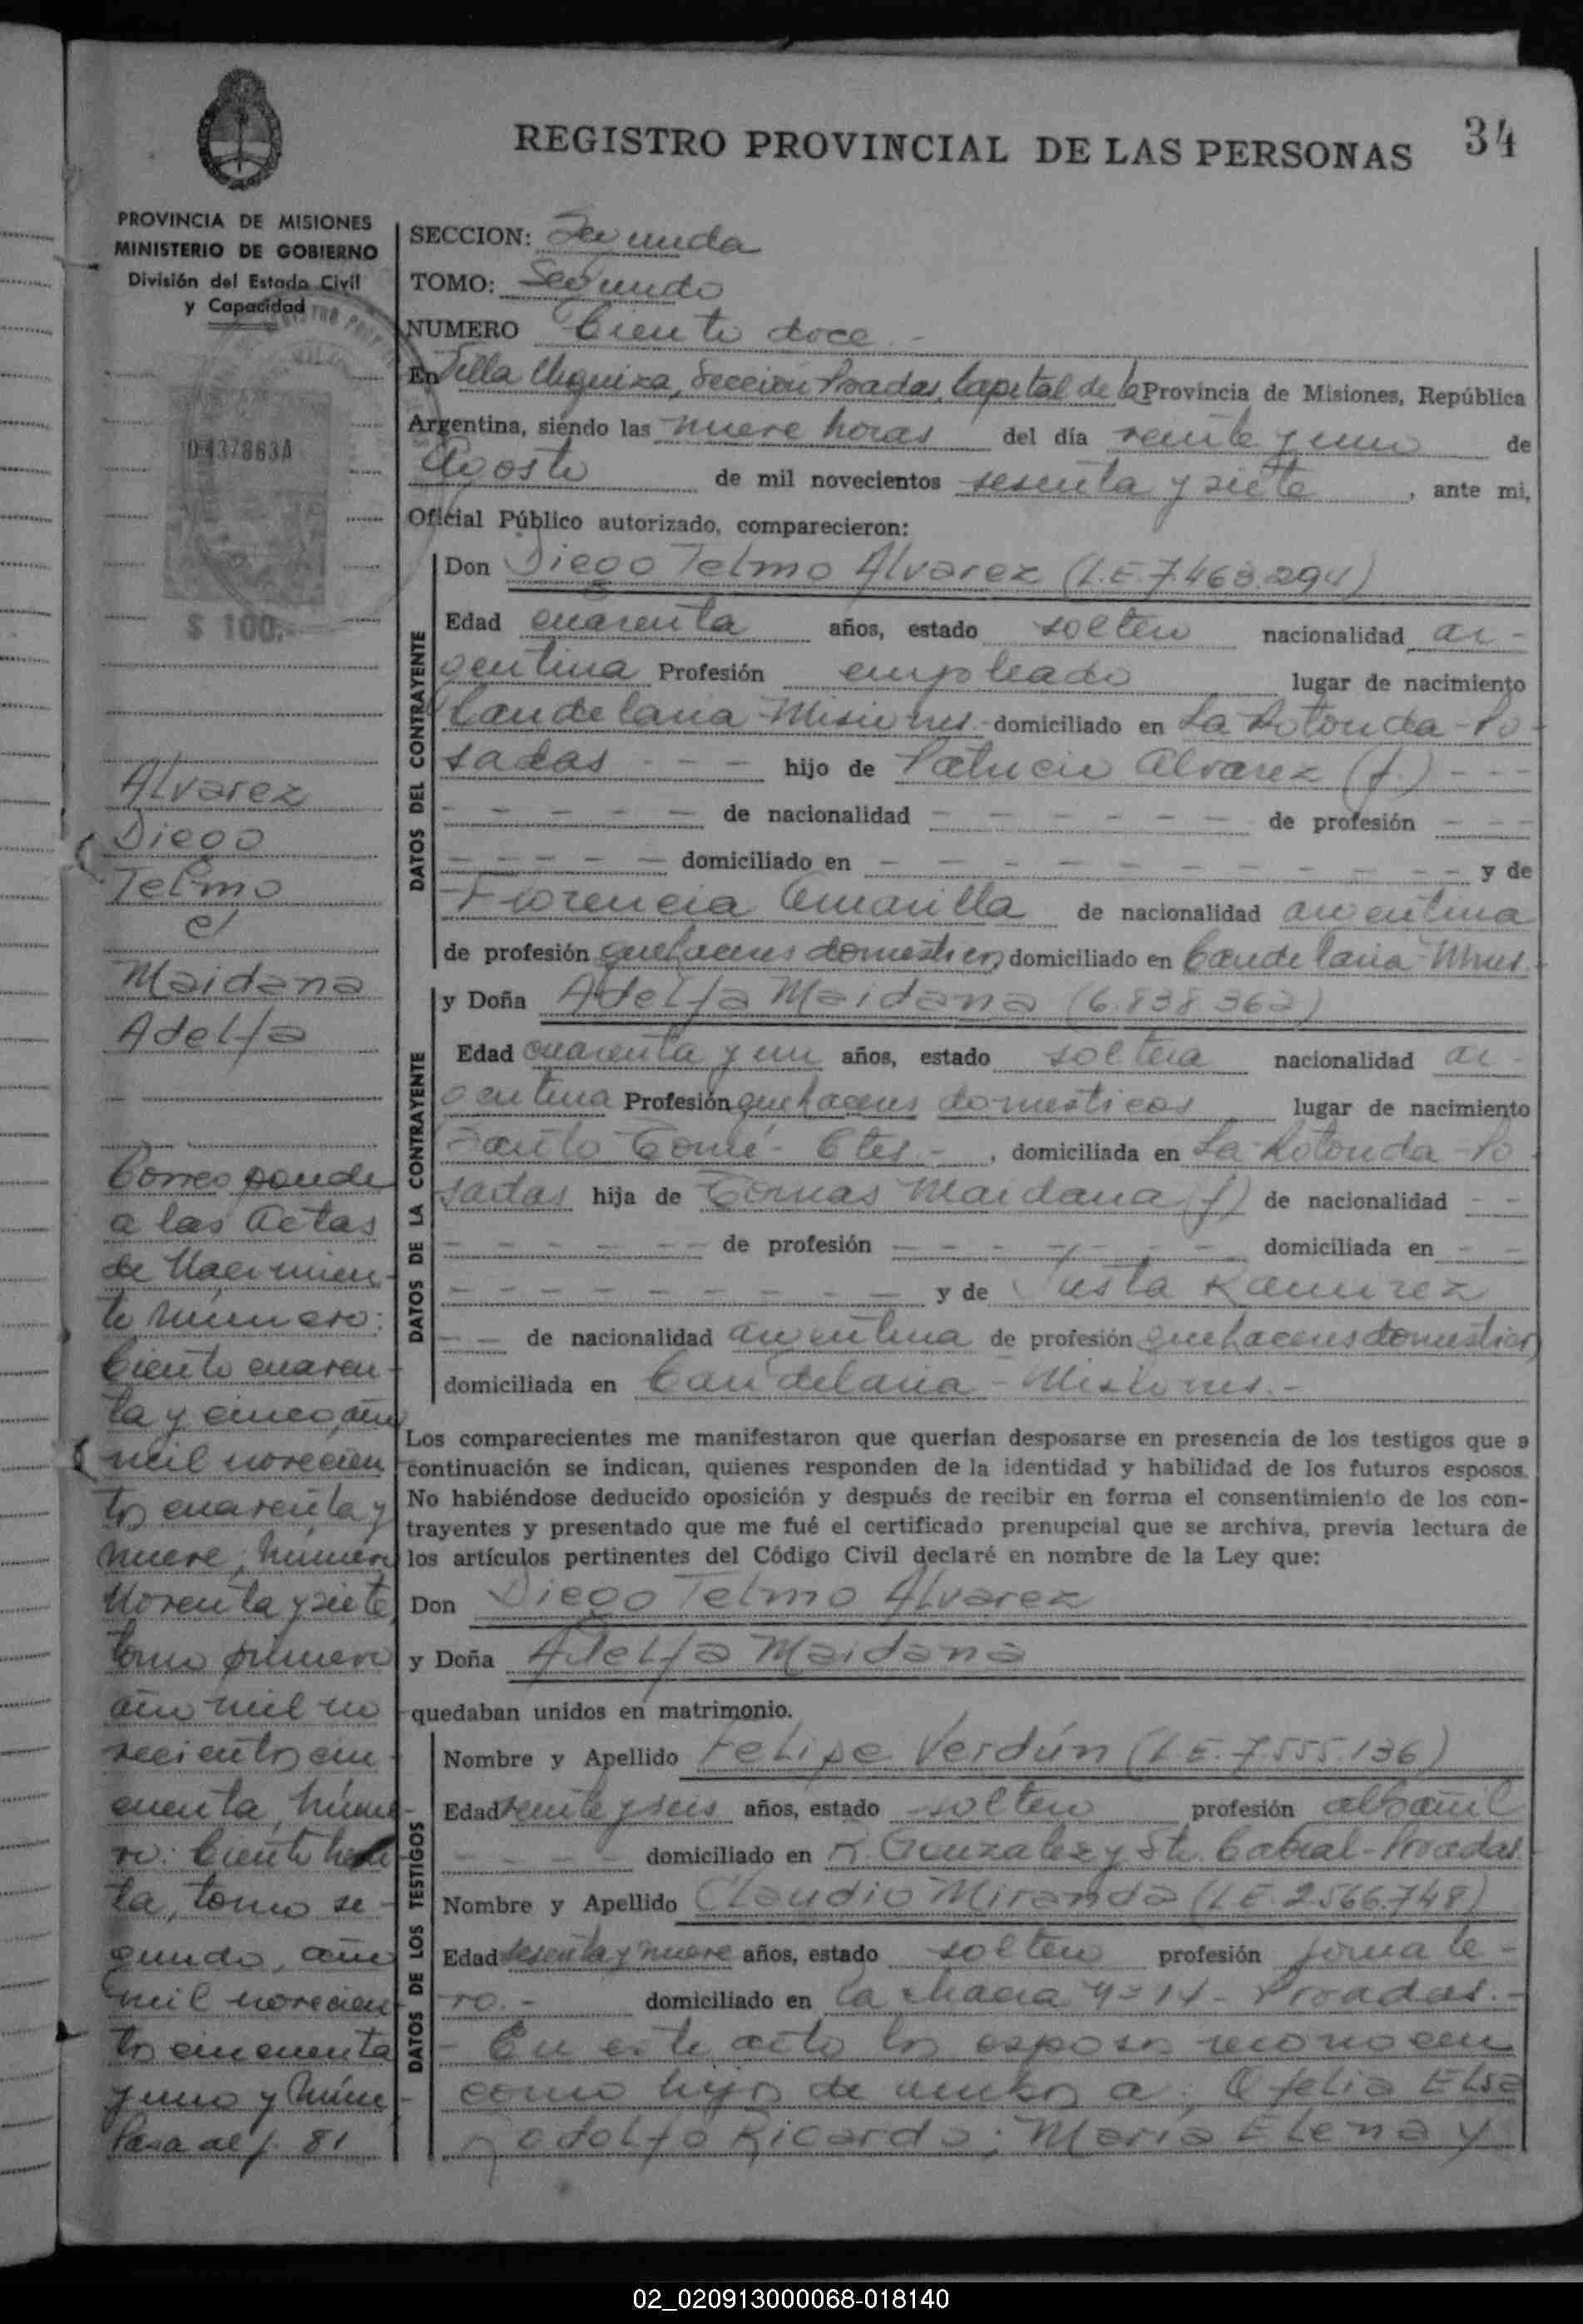 REGISTRO PROVINCIAL DE LAS PERSONAS 34
PROVINCIA DE MISIONES
MINISTERIO DE GOBIERNO
División del Estado Civil
y Capacidad
0437863A
$ 100.-
Alvarez
Diego
Telmo
c/
Maidana
Adelfa
Corresponde
a las Actas
de Nacimien-
to número:
Ciento cuaren-
ta y cinco, año
mil novecien
tos cuarenta y
nueve, número
Noventa y siete
tomo primero
año mil no
vecientos cin
cuenta, núme-
ro: Ciento
ta, tomo se-
gundo, año
mil novecien
tos cincuenta
y uno y núme-
Pasa al f. 81
SECCION: Segunda
TOMO: Segundo
NUMERO Ciento doce.-
En Villa Urquiza, Sección Posadas, Capital de la Provincia de Misiones, República
Argentina, siendo las nueve horas del día veinte y uno de
Agosto de mil novecientos sesenta y siete, ante mi,
Oficial Público autorizado, comparecieron:
DATOS DEL CONTRAYENTE
Don Diego Telmo Alvarez (L.E 7.463.294)
Edad cuarenta años, estado soltero nacionalidad ar-
gentina Profesión empleado lugar de nacimiento
Candelaria Misiones.- domiciliado en La Rotonda - Po-
sadas - - - hijo de Patricio Alvarez (f.) - - -
- - - - - de nacionalidad - - - - - - de profesión - - -
- - - - - domiciliado en - - - - - - - - - y de
Florencia Amarilla de nacionalidad argentina
de profesión quehaceres domésticos, domiciliado en Candelaria - Mnes.
DATOS DE LA CONTRAYENTE
y Doña Adelfa Maidana (6.838.362)
Edad cuarenta y un años, estado soltera nacionalidad ar-
gentina Profesión quehaceres domesticos lugar de nacimiento
Santo Tomé - Ctes.-, domiciliada en La Rotonda - Po
sadas hija de Tomas Maidana (f) de nacionalidad - -
- - - - - - de profesión - - - - - - domiciliada en - -
- - - - - - - - - y de Justa Ramirez
- - de nacionalidad argentina de profesión quehaceres domesticos
domiciliada en Candelaria - Misiones.-
Los comparecientes me manifestaron que querían desposarse en presencia de los testigos que a
continuación se indican, quienes responden de la identidad y habilidad de los futuros esposos.
No habiéndose deducido oposición y después de recibir en forma el consentimiento de los con-
trayentes y presentado que me fué el certificado prenupcial que se archiva, previa lectura de
los artículos pertinentes del Código Civil declaré en nombre de la Ley que:
Don Diego Telmo Alvarez
y Doña Adelfa Maidana
quedaban unidos en matrimonio.
DATOS DE LOS TESTIGOS
Nombre y Apellido Felipe Verdún (L E. 7.555.136)
Edad veinte y seis años, estado soltero profesión albañil
- - - - domiciliado en R. Gonzalez y Sto. Cabral - Posadas
Nombre y Apellido Claudio Miranda (L E. 2.566.748)
Edad sesenta y nueve años, estado soltero profesión jornale-
ro.- domiciliado en la chacra Nº 14 - Posadas.-
- En este acto los esposos reconocen
como hijos de ambos a: Ofelia Elsa
Rodolfo Ricardo; Maria Elena y
02_020913000068-018140